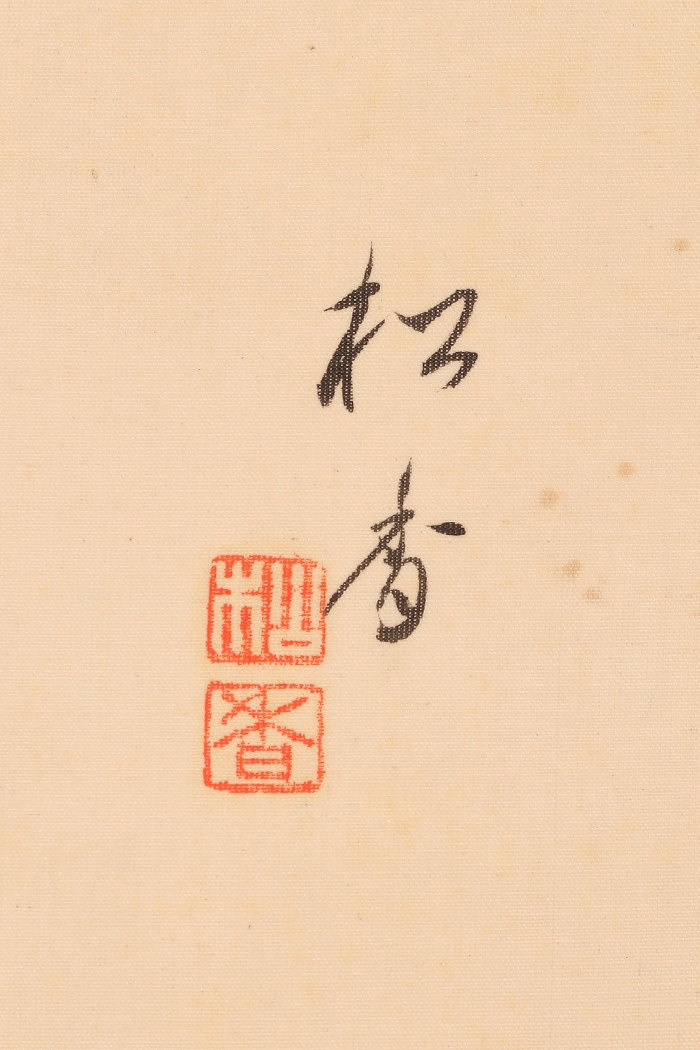 松
香
松
香